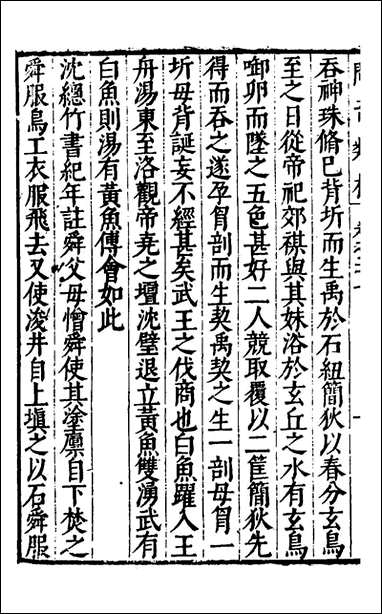 吞神珠脩巳背坼而生禹於石紐簡狄以春分玄鳥
至之日從帝祀郊禖與其妹浴於玄丘之水有玄鳥
啣卵而墜之五色甚好二人競取覆以二筐簡狄先
得而吞之遂孕胷剖而生契禹契之生一剖母胷一
坼母背誕妄不經甚矣武王之伐商也白魚躍入王
舟湯東至洛觀帝堯之壇沈璧退立黃魚雙湧武有
白魚則湯有黃魚傅會如此
沈總竹書紀年註舜父母憎舜使其塗廩自下焚之
舜服鳥工衣服飛去又使浚井自上塡之以石舜服